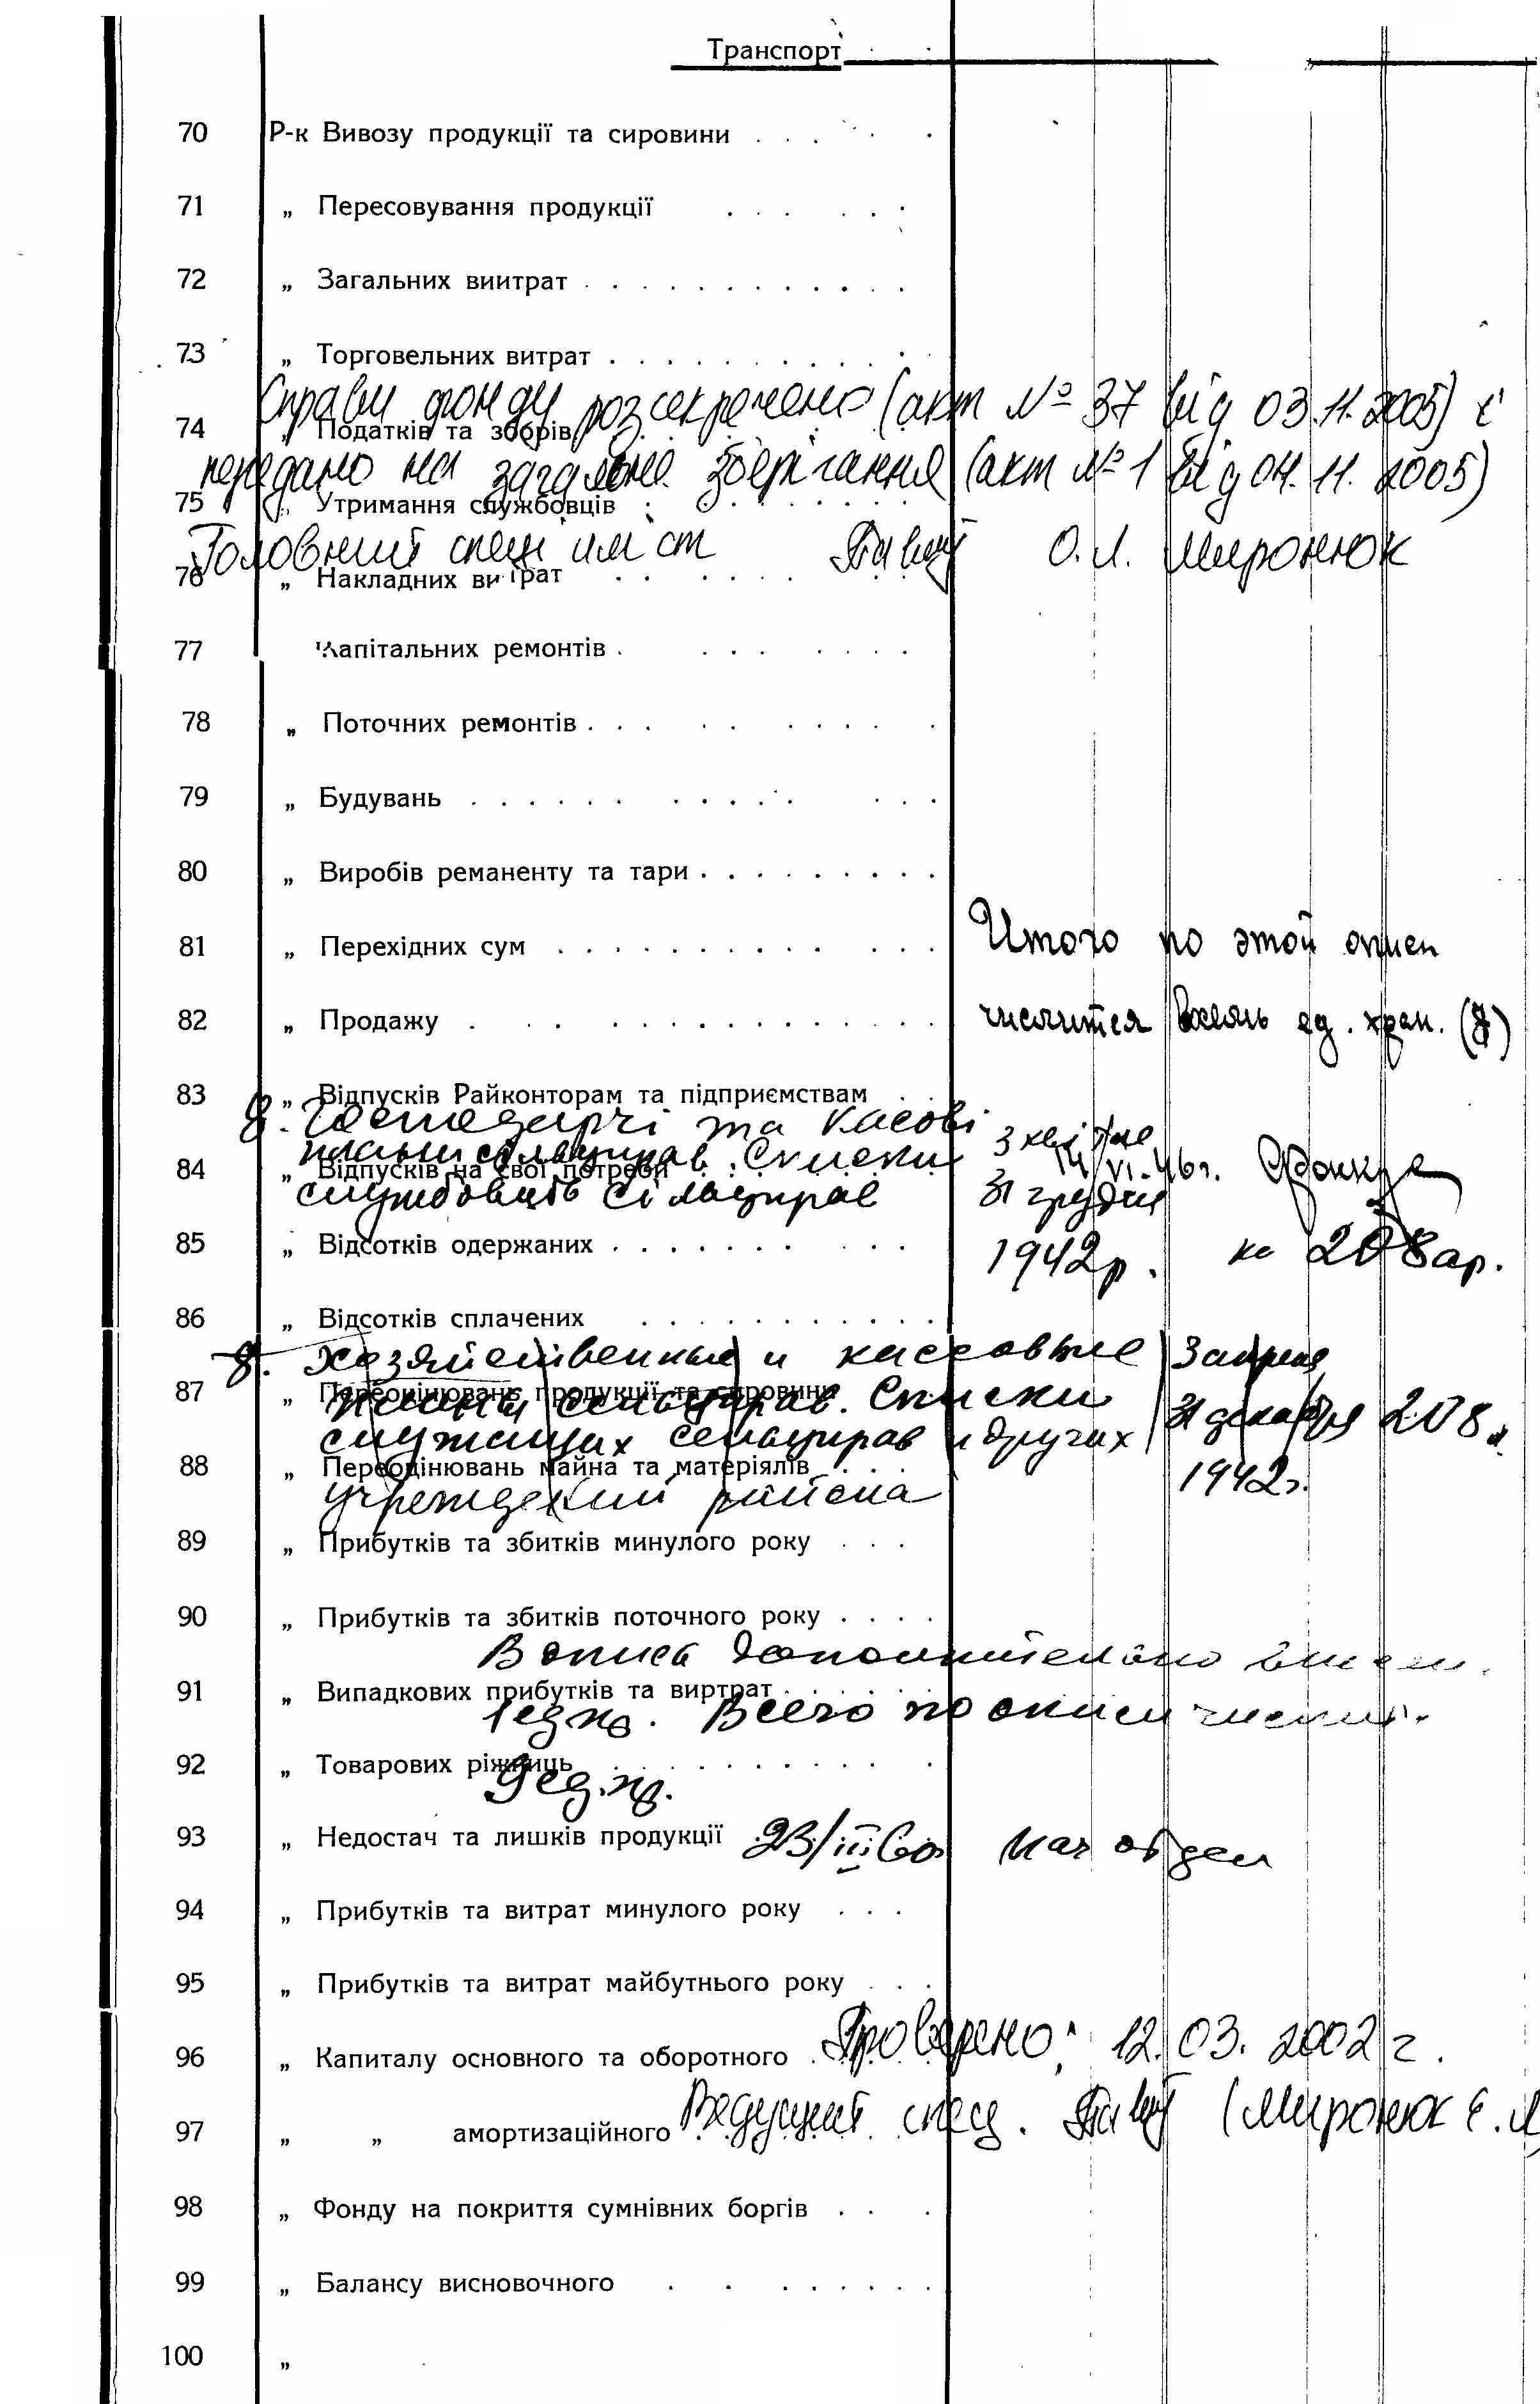 Транспорт
70 Р-к Вивозу продукції та сировини
71 „ Пересовування продукції
72 „ Загальних виитрат
73 „ Торговельних витрат
Справи фонду розсекречено (акт № 37 від 03.11.2005) і
74 „ Податків та зборів
передано на загальне зберігання (акт № 1 від 04.11.2005)
75 „ Утримання службовців
Головний спеціаліст О.Л. Миронюк
76 „ Накладних витрат
77 Капітальних ремонтів
78 „ Поточних ремонтів
79 „ Будувань
80 „ Виробів реманенту та тари
81 „ Перехідних сум
Итого по этой описи
82 „ Продажу
числится восемь ед. хран. (8)
83 „ Відпусків Райконторам та підприємствам
8. Господарчі та касові
плани сільуправ. Списки
14/VI-46г.
84 „ Відпусків на свої потреби
службовців сільуправ 31 грудня
85 „ Відсотків одержаних
1942р. на 208 ар.
86 „ Відсотків сплачених
8. Хозяйственные и кассовые 3 апреля
87 „ Переоцінювань продукції та сировини
планы сельуправ. Списки 31 декабря 208
служащих сельуправ и других
88 „ Переоцінювань майна та матеріялів
1942г.
учреждений района
89 „ Прибутків та збитків минулого року
90 „ Прибутків та збитків поточного року
В опись дополнительно внесен.
91 „ Випадкових прибутків та виртрат
1 ед. хр. Всего по описи числит.
92 „ Товарових ріжниць
9 ед. хр.
93 „ Недостач та лишків продукції
23/III 60 Нач отдел
94 „ Прибутків та витрат минулого року
95 „ Прибутків та витрат майбутнього року
Проверено: 12.03.2002 г.
96 „ Капиталу основного та оборотного
Ведущий спец. (Миронюк Е.Л
97 „ „ амортизаційного
98 „ Фонду на покриття сумнівних боргів
99 „ Балансу висновочного
100 „